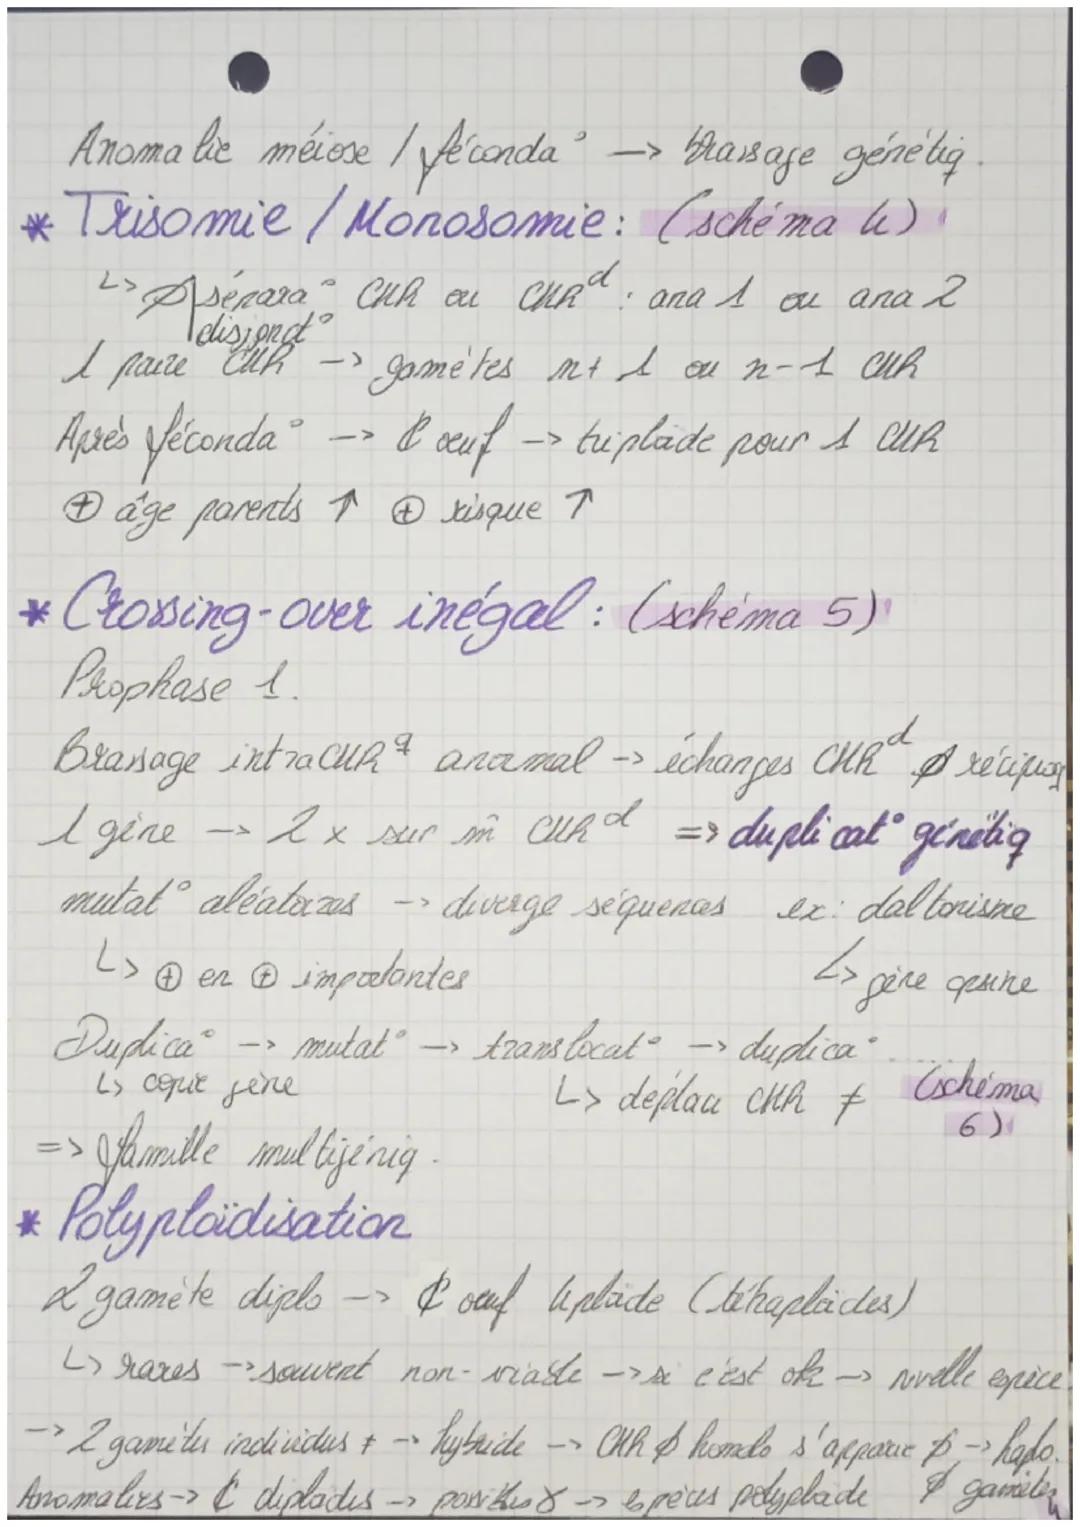 Anomalie méiose / féconda° -> brassage génétiq.
* Trisomie / Monosomie : (schéma 4)
↳ ∅ sépara° CHR ou CHRᵈ : ana 1 ou ana 2
disjonct°
1 paire CHR -> gamètes n+1 ou n-1 CHR
Après féconda° -> ₵ œuf -> triploïde pour 1 CHR
⊕ âge parents ↑ ⊕ risque ↑
* Crossing-over inégal : (schéma 5)
Prophase 1.
Brassage intraCHRq anormal -> échanges CHRᵈ ∅ réciproq
1 gène -> 2 x sur m̂ CHRᵈ => duplicat° génétiq
mutat° aléatoires -> diverge séquences ex: daltonisme
↳ ⊕ en ⊕ importantes ↳ gène opsine
Duplica° -> mutat° -> translocat° -> duplica° .....
↳ copie gène ↳ déplace CHR ≠ (schéma
6)
=> famille multigéniq.
* Polyploïdisation
2 gamète diplo -> ₵ œuf 4ploïde (tétraploïdes)
↳ rares -> souvent non-viable -> si c'est ok -> nvelle espèce.
-> 2 gamètes individus ≠ -> hybride -> CHR ∅ homolo s'apparie ∅ -> haplo.
Anomalies -> ₵ diploïdes -> possibles -> espèces polyploïde ∅ gamètes